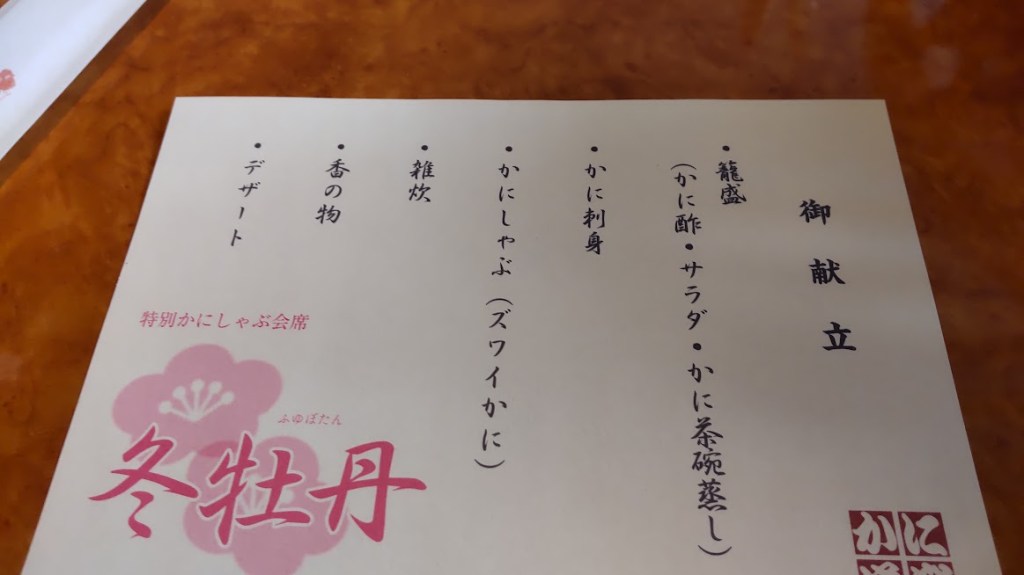 御献立
・籠盛
(かに酢・サラダ・かに茶碗蒸し)
・かに刺身
・かにしゃぶ(ズワイかに)
・雑炊
・香の物
・デザート
特別かにしゃぶ会席
ふゆぼたん
冬牡丹
かに